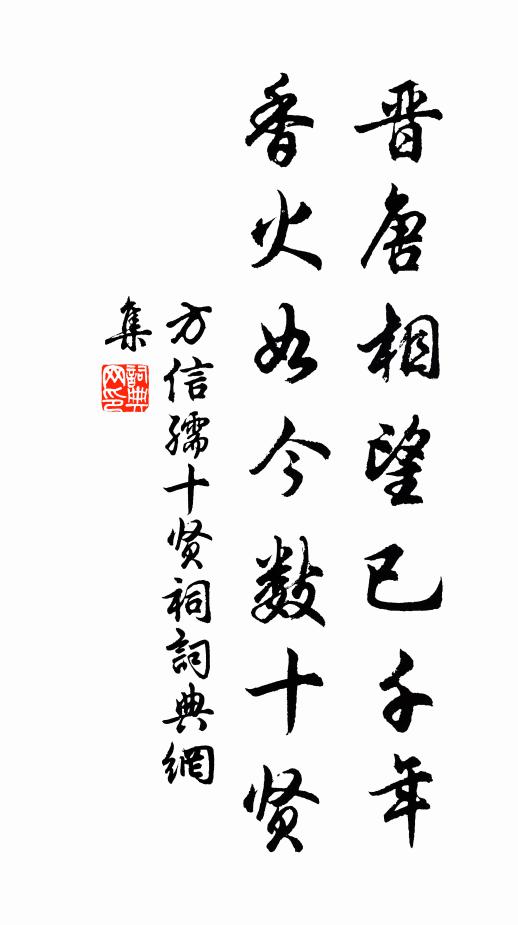 晋唐相望已千年
香火如今数十贤
方信孺十贤祠詞典網
集
詞典网印